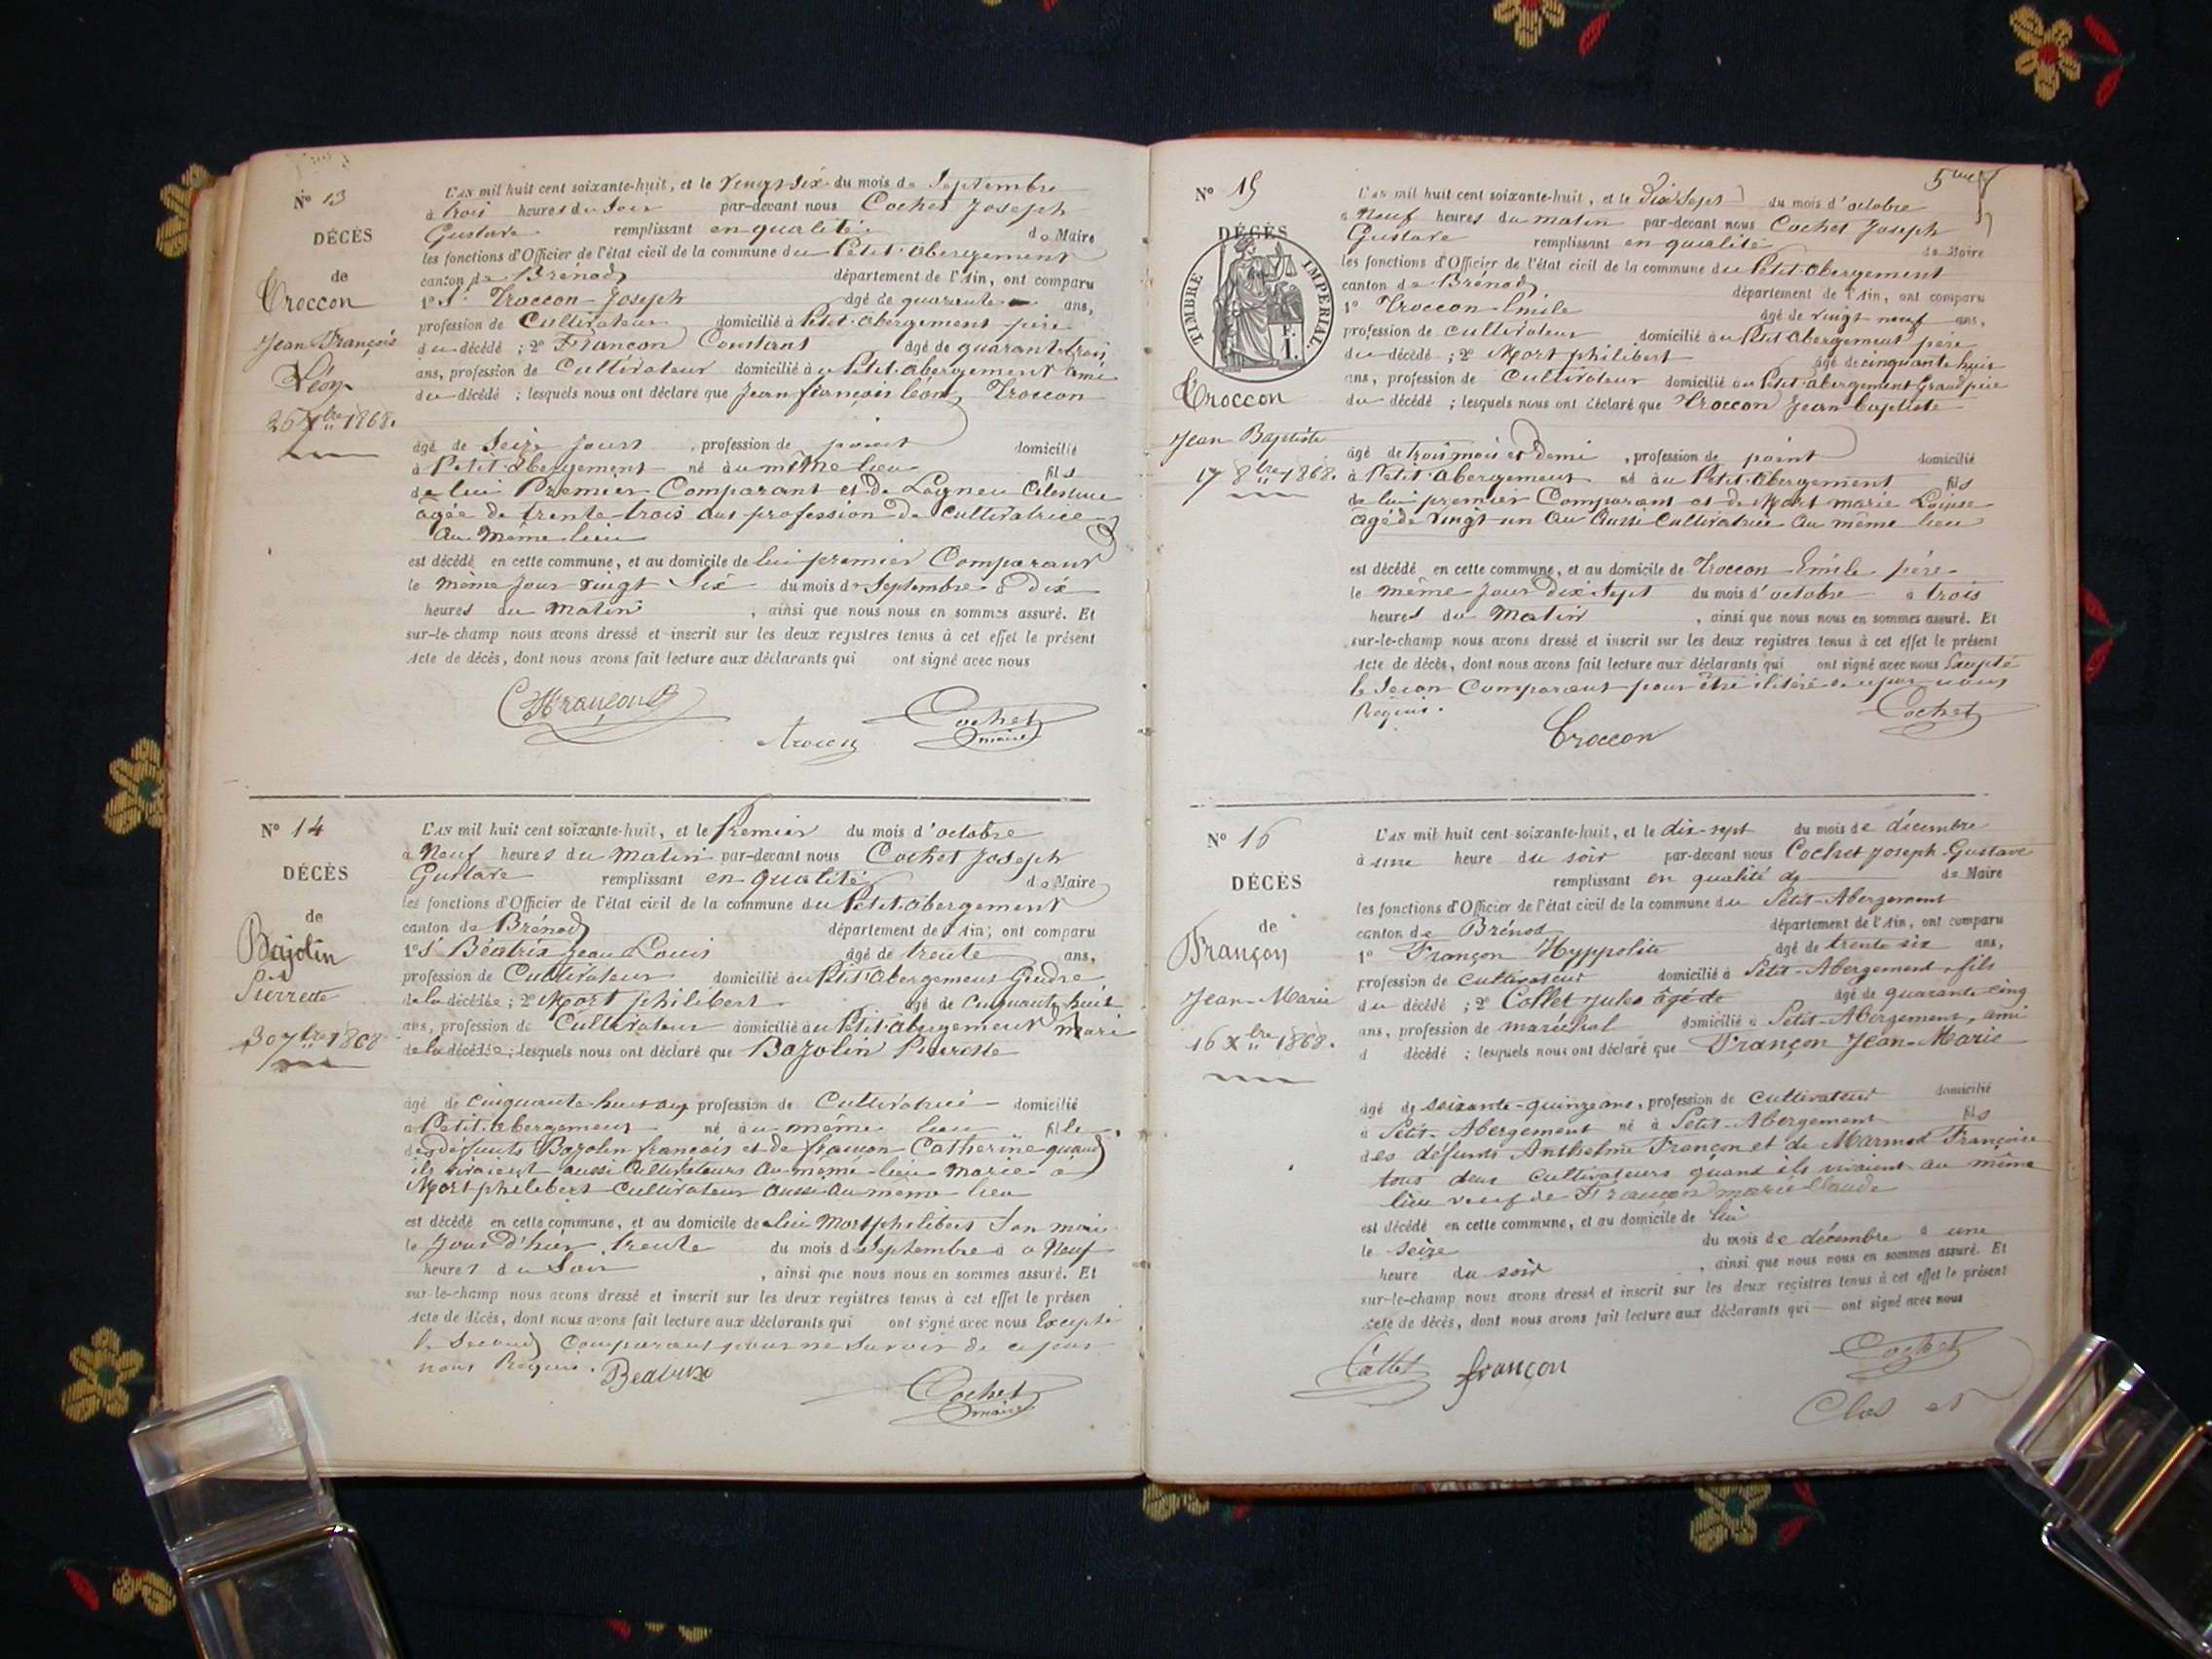 N° 13
DÉCÈS
de
Troccon
Jean François
Léon
26 7bre 1868.
L'AN mil huit cent soixante-huit, et le Vingt-Six du mois de Septembre
à trois heures du Soir par-devant nous Cochet Joseph
Gustave remplissant en qualité de Maire
les fonctions d'Officier de l'état civil de la commune du Petit-abergement
canton de Brénod département de l'Ain, ont comparu
1° S. Troccon Joseph âgé de quarante ans,
profession de Cultivateur domicilié à Petit-abergement père
du décédé ; 2° Françon Constant âgé de quarant-trois
ans, profession de Cultivateur domicilié au Petit-abergement ami
du décédé ; lesquels nous ont déclaré que Jean françois léon Troccon
âgé de Seize jours , profession de point domicilié
à Petit-Abergement né au même lieu fils
de lui Premier Comparant et de Célestine
agée de trente trois ans profession de Cultivatrice
au même lieu
est décédé en cette commune, et au domicile de lui premier Comparant
le même jour vingt Six du mois de Septembre à dix
heures du matin , ainsi que nous nous en sommes assuré. Et
sur-le-champ nous avons dressé et inscrit sur les deux registres tenus à cet effet le présent
Acte de décès, dont nous avons fait lecture aux déclarants qui ont signé avec nous
CFrançon
troccon
Cochet
maire
N° 14
DÉCÈS
de
Bajolin
Pierrette
30 7bre 1868
L'AN mil huit cent soixante-huit, et le Premier du mois d'octobre
à Neuf heures du Matin par-devant nous Cochet Joseph
Gustave remplissant en qualité de Maire
les fonctions d'Officier de l'état civil de la commune du Petit-abergement
canton de Brénod département de l'Ain, ont comparu
1° S. Béatrix Jean Louis âgé de trente ans,
profession de Cultivateur domicilié au Petit Abergement Gendre
de la décédée ; 2° Mort philibert âgé de Cinquante huit
ans, profession de Cultivateur domicilié au Petit-abergement Mari
de la décédée ; lesquels nous ont déclaré que Bajolin Pierrette
âgé de Cinquante-huit ans profession de Cultivatrice domicilié
à Petit-abergement né au même lieu fille
des défunts Bajolin francois et de françon Catherine quand
ils vivaient aussi Cultivateurs au même lieu Mariée a
Mort philibert Cultivateur aussi au même lieu
est décédé en cette commune, et au domicile de lui Mort philibert Son mari
le Jour d'hier trente du mois de Septembre à Neuf
heures du Soir , ainsi que nous nous en sommes assuré. Et
sur-le-champ nous avons dressé et inscrit sur les deux registres tenus à cet effet le présen
Acte de décès, dont nous avons fait lecture aux déclarants qui ont signé avec nous Excepté
le Second Comparant pour ne Savoir de ce par
nous Requis.
Beatrix
Cochet
maire
5me
N° 15
DÉCÈS
TIMBRE IMPERIAL.
F.
1.
Troccon
Jean Baptiste
17 8bre 1868.
L'AN mil huit cent soixante-huit, et le Dix Sept du mois d'octobre
à Neuf heures du matin par-devant nous Cochet Joseph
Gustave remplissant en qualité de Maire
les fonctions d'Officier de l'état civil de la commune du Petit-abergement
canton de Brénod département de l'Ain, ont comparu
1° Troccon Emile âgé de vingt-neuf ans,
profession de cultivateur domicilié au Petit Abergement père
du décédé ; 2° Mort philibert âgé de cinquante huit
ans, profession de Cultivateur domicilié au Petit-abergement Grand père
du décédé ; lesquels nous ont déclaré que Troccon Jean baptiste
âgé de trois mois et demi , profession de point domicilié
à Petit-abergement né au Petit-Abergement fils
de lui premier Comparant et de Mort marie Louise
âgé de vingt-un an Aussi Cultivatrice au même lieu
est décédé en cette commune, et au domicile de Troccon Emile père
le même jour dix Sept du mois d'octobre à trois
heures du Matin , ainsi que nous nous en sommes assuré. Et
sur-le-champ nous avons dressé et inscrit sur les deux registres tenus à cet effet le présent
Acte de décès, dont nous avons fait lecture aux déclarants qui ont signé avec nous Excepté
le Secon Comparant pour être de ce par nous
Requis.
Troccon
Cochet
N° 16
DÉCÈS
de
Françon
Jean-Marie
16 Xbre 1868.
L'AN mil huit cent soixante-huit, et le dix-sept du mois de décembre
à une heure du soir par-devant nous Cochet Joseph-Gustave
remplissant en qualité de de Maire
les fonctions d'Officier de l'état civil de la commune du Petit-Abergement
canton de Brénod département de l'Ain, ont comparu
1° Françon Hyppolite âgé de trente six ans,
profession de cultivateur domicilié à Petit-Abergement, fils
du décédé ; 2° Collet Jules âgé de âgé de quarante-cinq
ans, profession de maréchal domicilié à Petit-Abergement, ami
d décédé ; lesquels nous ont déclaré que Françon Jean-Marie
âgé de soixante-quinze ans, profession de cultivateur domicilié
à Petit-Abergement né à Petit-Abergement fils
des défunts Anthelme Françon et de Marmet Françoise
tous deux cultivateurs quand ils vivaient au même
lieu veuf de Françon marie Claude
est décédé en cette commune, et au domicile de lui
le seize du mois de décembre à une
heure du soir , ainsi que nous nous en sommes assuré. Et
sur-le-champ nous avons dressé et inscrit sur les deux registres tenus à cet effet le présent
Acte de décès, dont nous avons fait lecture aux déclarants qui ont signé avec nous
Collet
françon
Cochet
Clos et